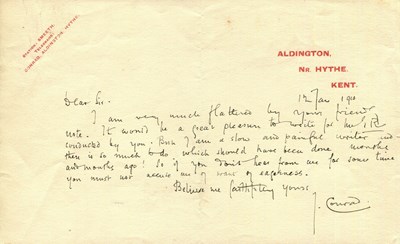 STATION: SMEETH.
TELEGRAMS:
CONRAD, ALDINGTON, HYTHE.
ALDINGTON,
NR HYTHE,
KENT.
12 Jan 1910
Dear Sir.
I am very much flattered by your friendly
note. It would be a great pleasure to write for the
conducted by you. But I am a slow and painful writer and
there is so much to do which should have been done months
and months ago! So if you don't hear from me for some time
you must not accuse me of want of eagerness.
Believe me faithfully yours
J. Conrad.